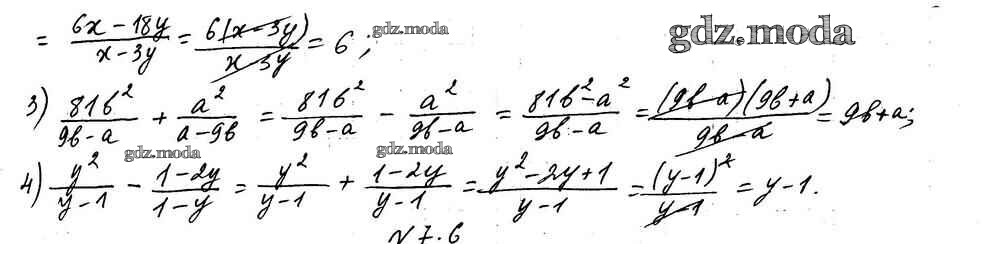 = (6x - 18y)/(x - 3y) = 6(x - 3y)/(x - 3y) = 6; gdz.moda gdz.moda
3) 81b²/(9b - a) + a²/(a - 9b) = 81b²/(9b - a) - a²/(9b - a) = (81b² - a²)/(9b - a) = (9b - a)(9b + a)/(9b - a) = 9b + a;
gdz.moda gdz.moda
4) y²/(y - 1) - (1 - 2y)/(1 - y) = y²/(y - 1) + (1 - 2y)/(y - 1) = (y² - 2y + 1)/(y - 1) = (y - 1)²/(y - 1) = y - 1.
№ 7.6